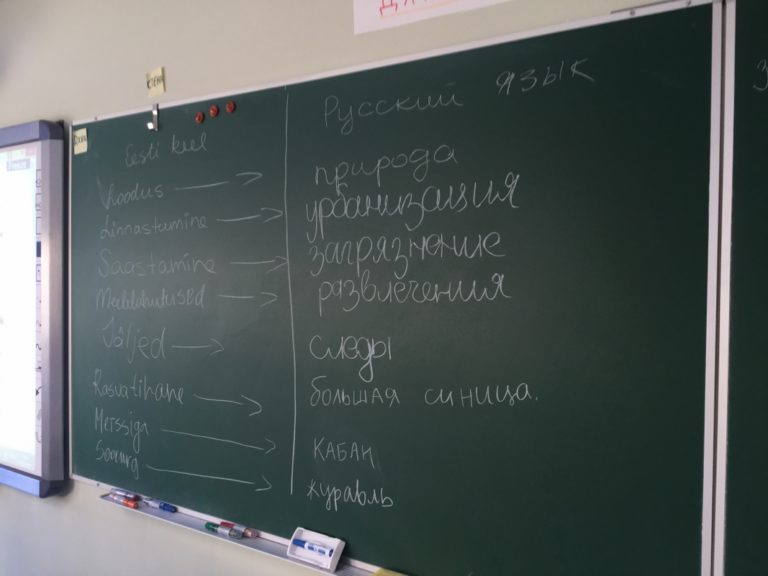 Eesti keel
Русский язык
Loodus → природа
Linnastumine → урбанизация
Saastamine → загрязнение
Meelelahutused → развлечения
Jäljed → следы
Rasvatihane → большая синица.
Metssiga → КАБАН
Soomrg → журавль